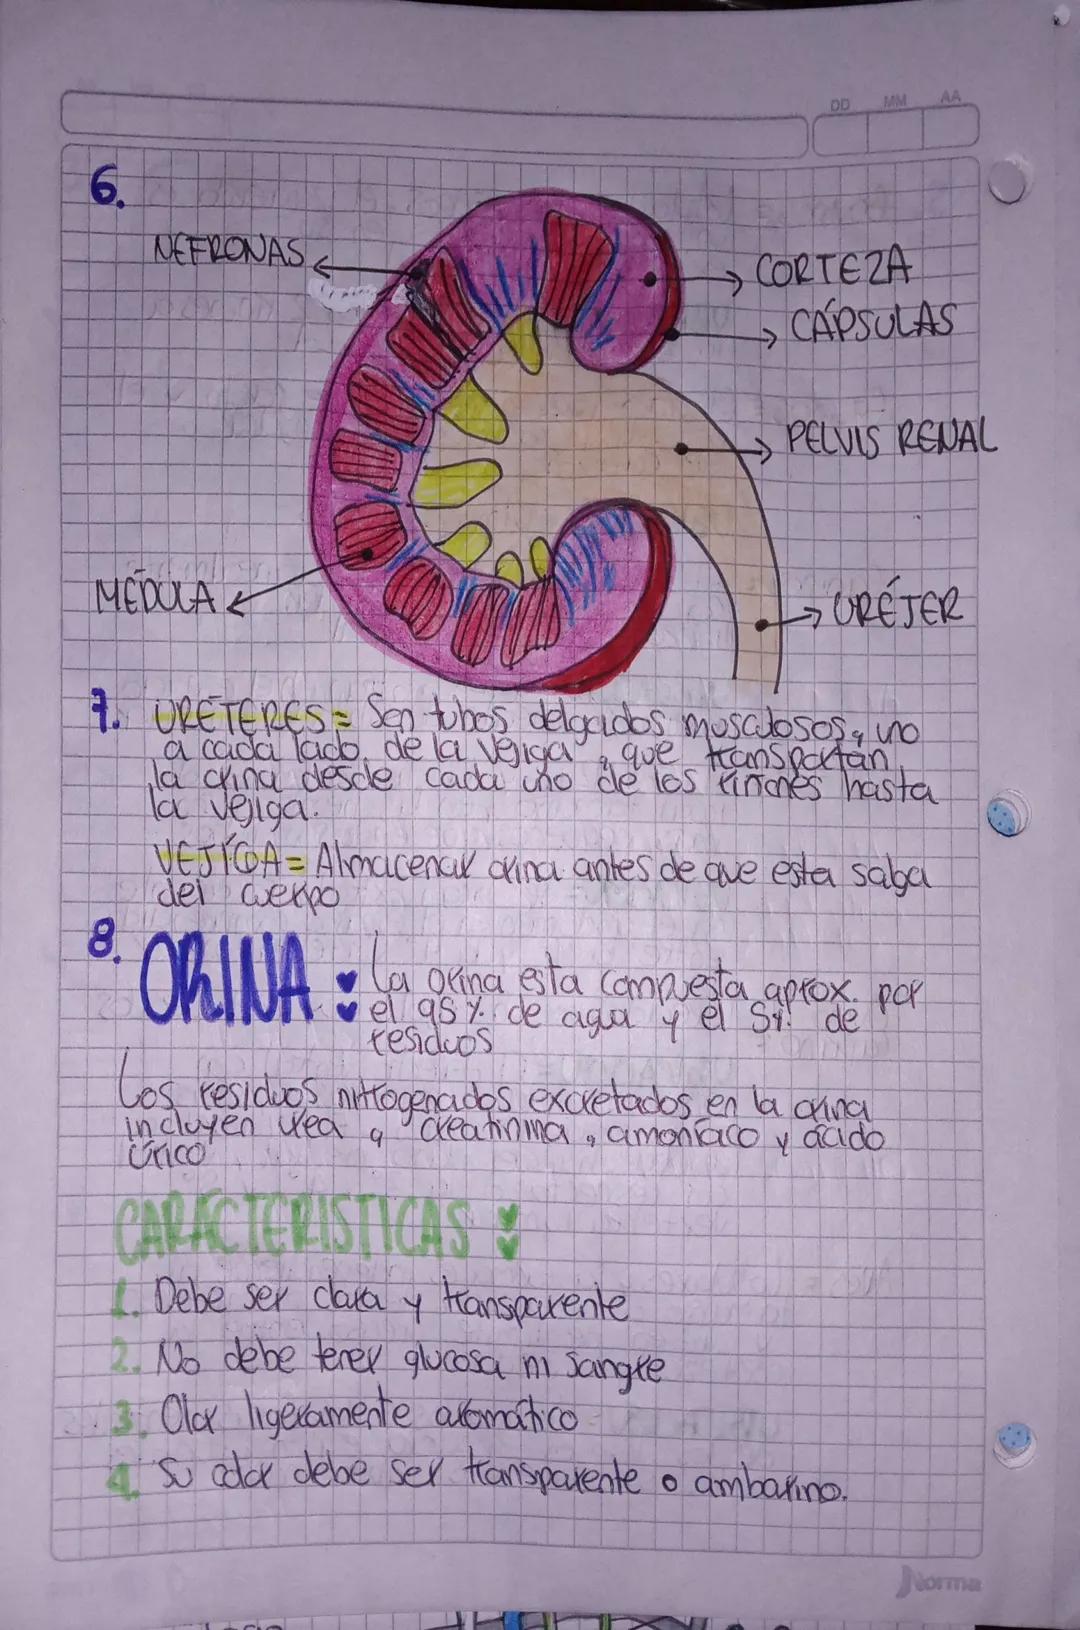 DD MM AA
6.
NEFRONAS
CORTEZA
CÁPSULAS
PELVIS RENAL
MÉDULA
URÉTER
7. URÉTERES = Son tubos delgados musculosos, uno
a cada lado de la vejiga, que transportan
la orina desde cada uno de los riñones hasta
la vejiga.
VEJIGA = Almacenar orina antes de que esta salga
del cuerpo
8. ORINA : La orina esta compuesta aprox. por
el 95%. de agua y el 5%. de
residuos
Los residuos nitrogenados excretados en la orina
incluyen urea, creatinina, amoníaco y ácido
úrico
CARACTERISTICAS :
1. Debe ser clara y transparente
2. No debe tener glucosa ni sangre
3. Olor ligeramente aromático
4. Su color debe ser transparente o ambarino.
Norma